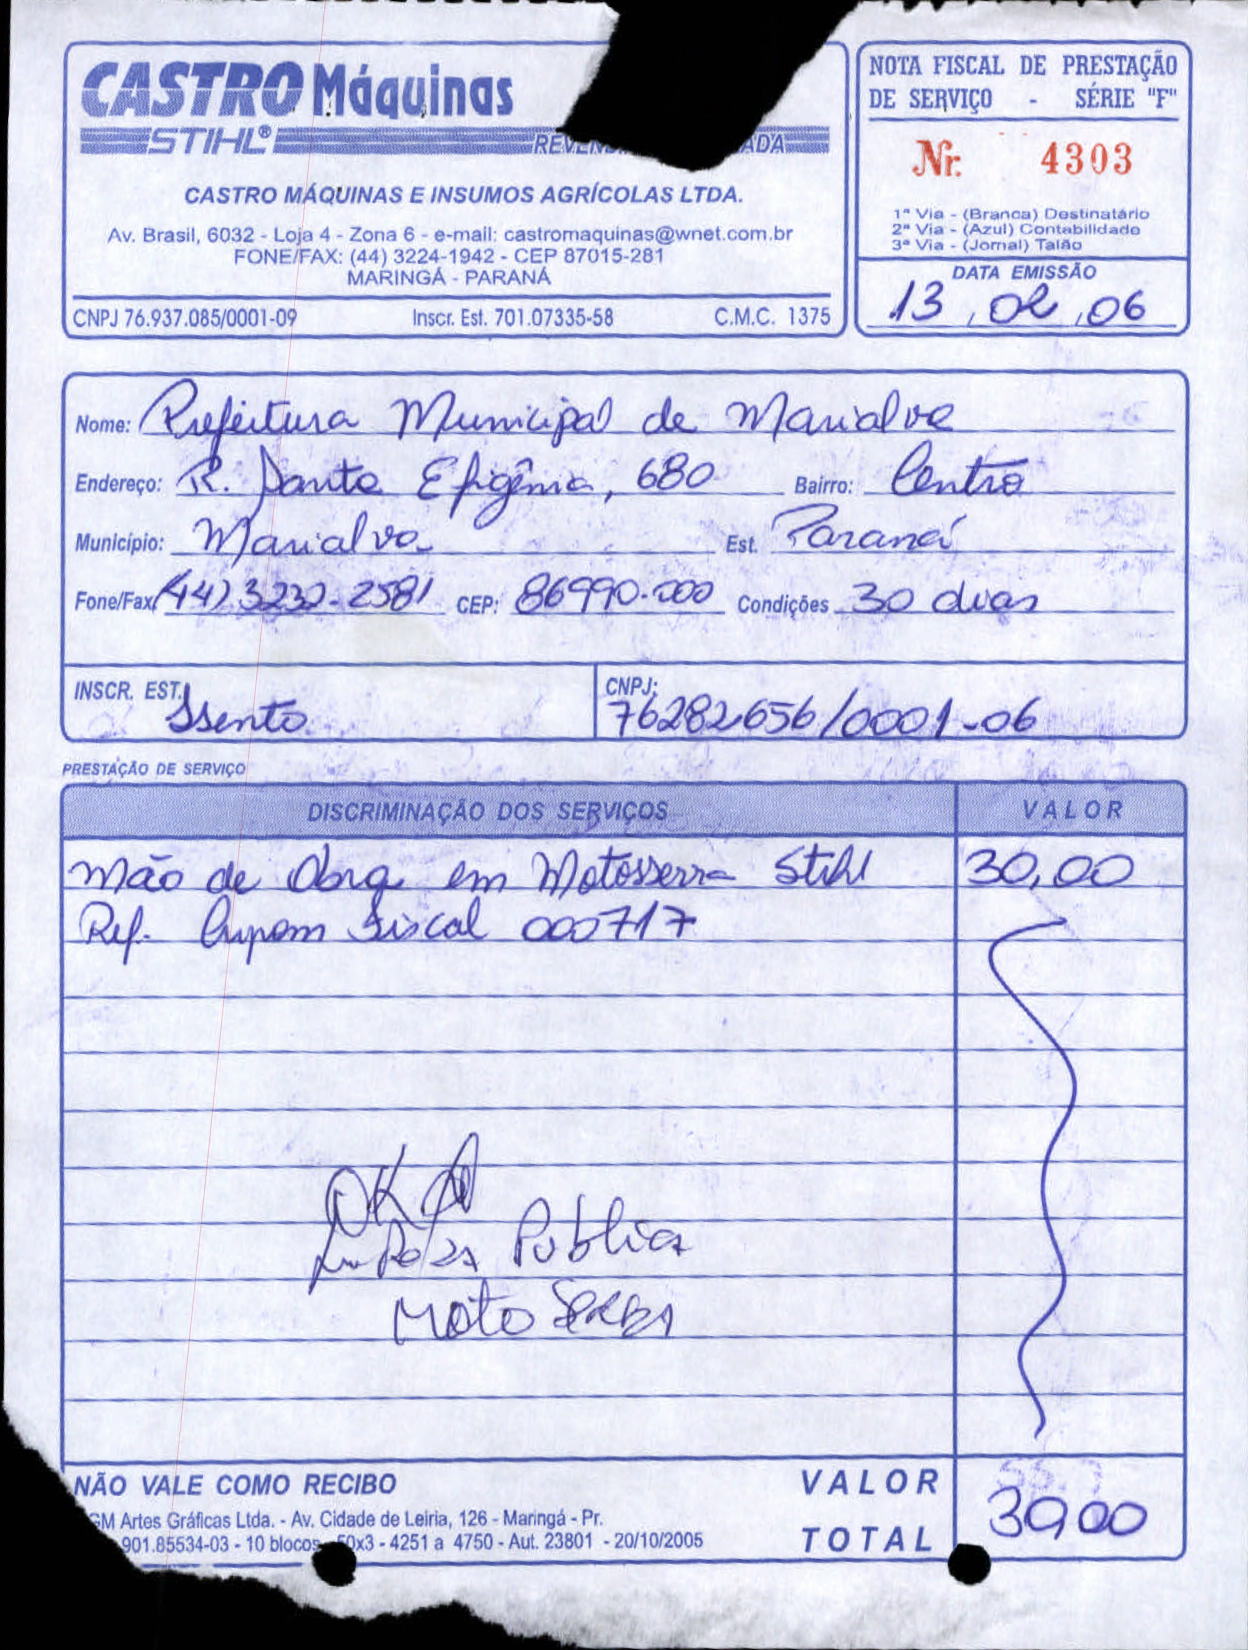 CASTRO Máquinas
STIHL®
CASTRO MÁQUINAS E INSUMOS AGRÍCOLAS LTDA.
Av. Brasil, 6032 - Loja 4 - Zona 6 - e-mail: castromaquinas@wnet.com.br
FONE/FAX: (44) 3224-1942 - CEP 87015-281
MARINGÁ - PARANÁ
CNPJ 76.937.085/0001-09 Inscr. Est. 701.07335-58 C.M.C. 1375
NOTA FISCAL DE PRESTAÇÃO
DE SERVIÇO - SÉRIE "F"
Nr. 4303
1ª Via - (Branca) Destinatário
2ª Via - (Azul) Contabilidade
3ª Via - (Jornal) Talão
DATA EMISSÃO
13, 02, 06
Nome: Prefeitura Municipal de Marialva
Endereço: R. Santa Efigênia, 680 Bairro: Centro
Município: Marialva Est. Paraná
Fone/Fax (44) 3232-2581 CEP: 86990-000 Condições 30 dias
INSCR. EST. Isento CNPJ: 76282656/0001-06
PRESTAÇÃO DE SERVIÇO
DISCRIMINAÇÃO DOS SERVIÇOS VALOR
Mão de Obra em Motosserra Stihl 30,00
Ref. Cupom Fiscal 000717
OK
Limpeza Publica
Moto SERRA
NÃO VALE COMO RECIBO
GM Artes Gráficas Ltda. - Av. Cidade de Leiria, 126 - Maringá - Pr.
901.85534-03 - 10 blocos 50x3 - 4251 a 4750 - Aut. 23801 - 20/10/2005
VALOR
TOTAL
3000